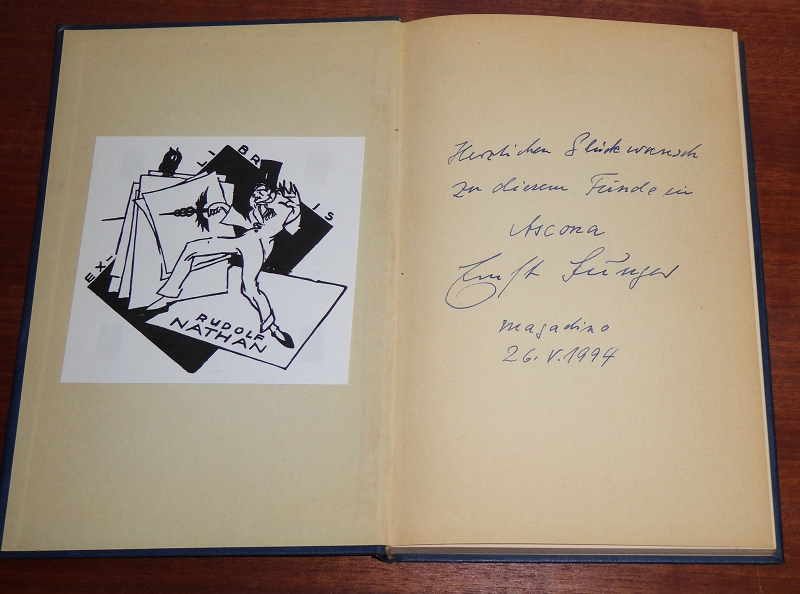 EX LIBRIS
RUDOLF
NATHAN
Herzlichen Glückwunsch
zu diesem Funde in
Ascona
Ernst Jünger
Magadino
26. V. 1994